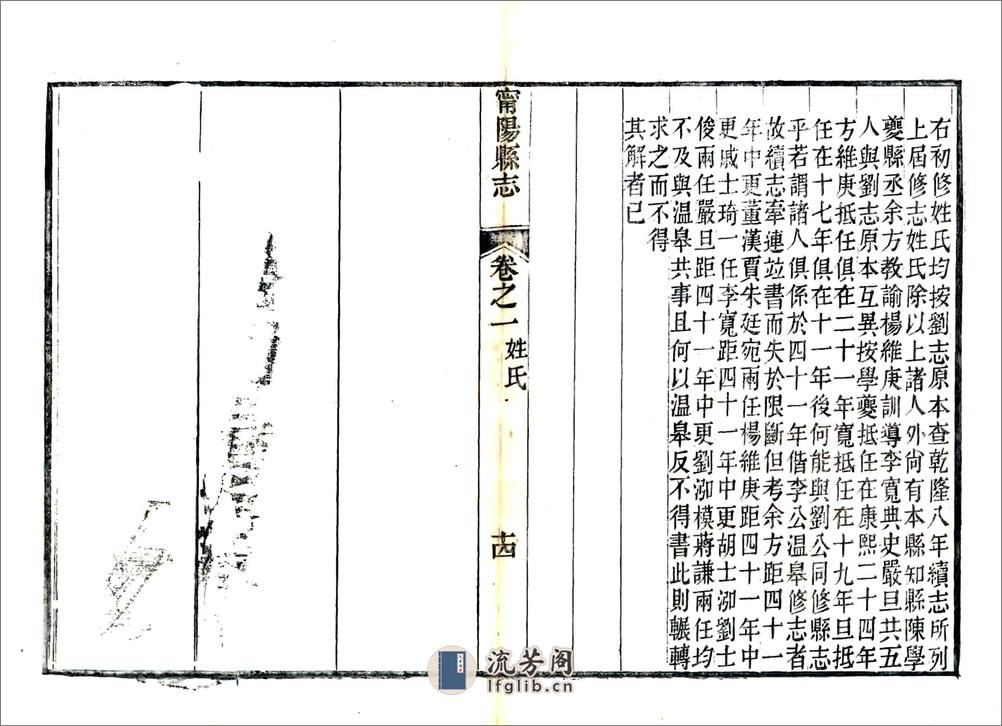 右初修姓氏均按劉志原本查乾隆八年續志所列
上屆修志姓氏除以上諸人外尚有本縣知縣陳學
夔縣丞余方教諭楊維庚訓導李寬典史嚴旦共五
人與劉志原本互異按學夔抵任在康熙二十四年
方維庚抵任俱在二十一年寬抵任在十九年旦抵
任在十七年俱在十一年後何能與劉公同修縣志
乎若謂諸人俱係於四十一年偕李公溫皋修志者
故續志牽連竝書而失於限斷但考余方距四十一
年中更董漢賈朱廷宛兩任楊維庚距四十一年中
更戚士琦一任李寬距四十一年中更胡士泖劉士
俊兩任嚴旦距四十一年中更劉泖模蔣謙兩任均
不及與溫皋共事且何以溫皋反不得書此則輾轉
求之而不得
其解者已
甯陽縣志
卷之一 姓氏
十四
流芳阁
lfglib.cn